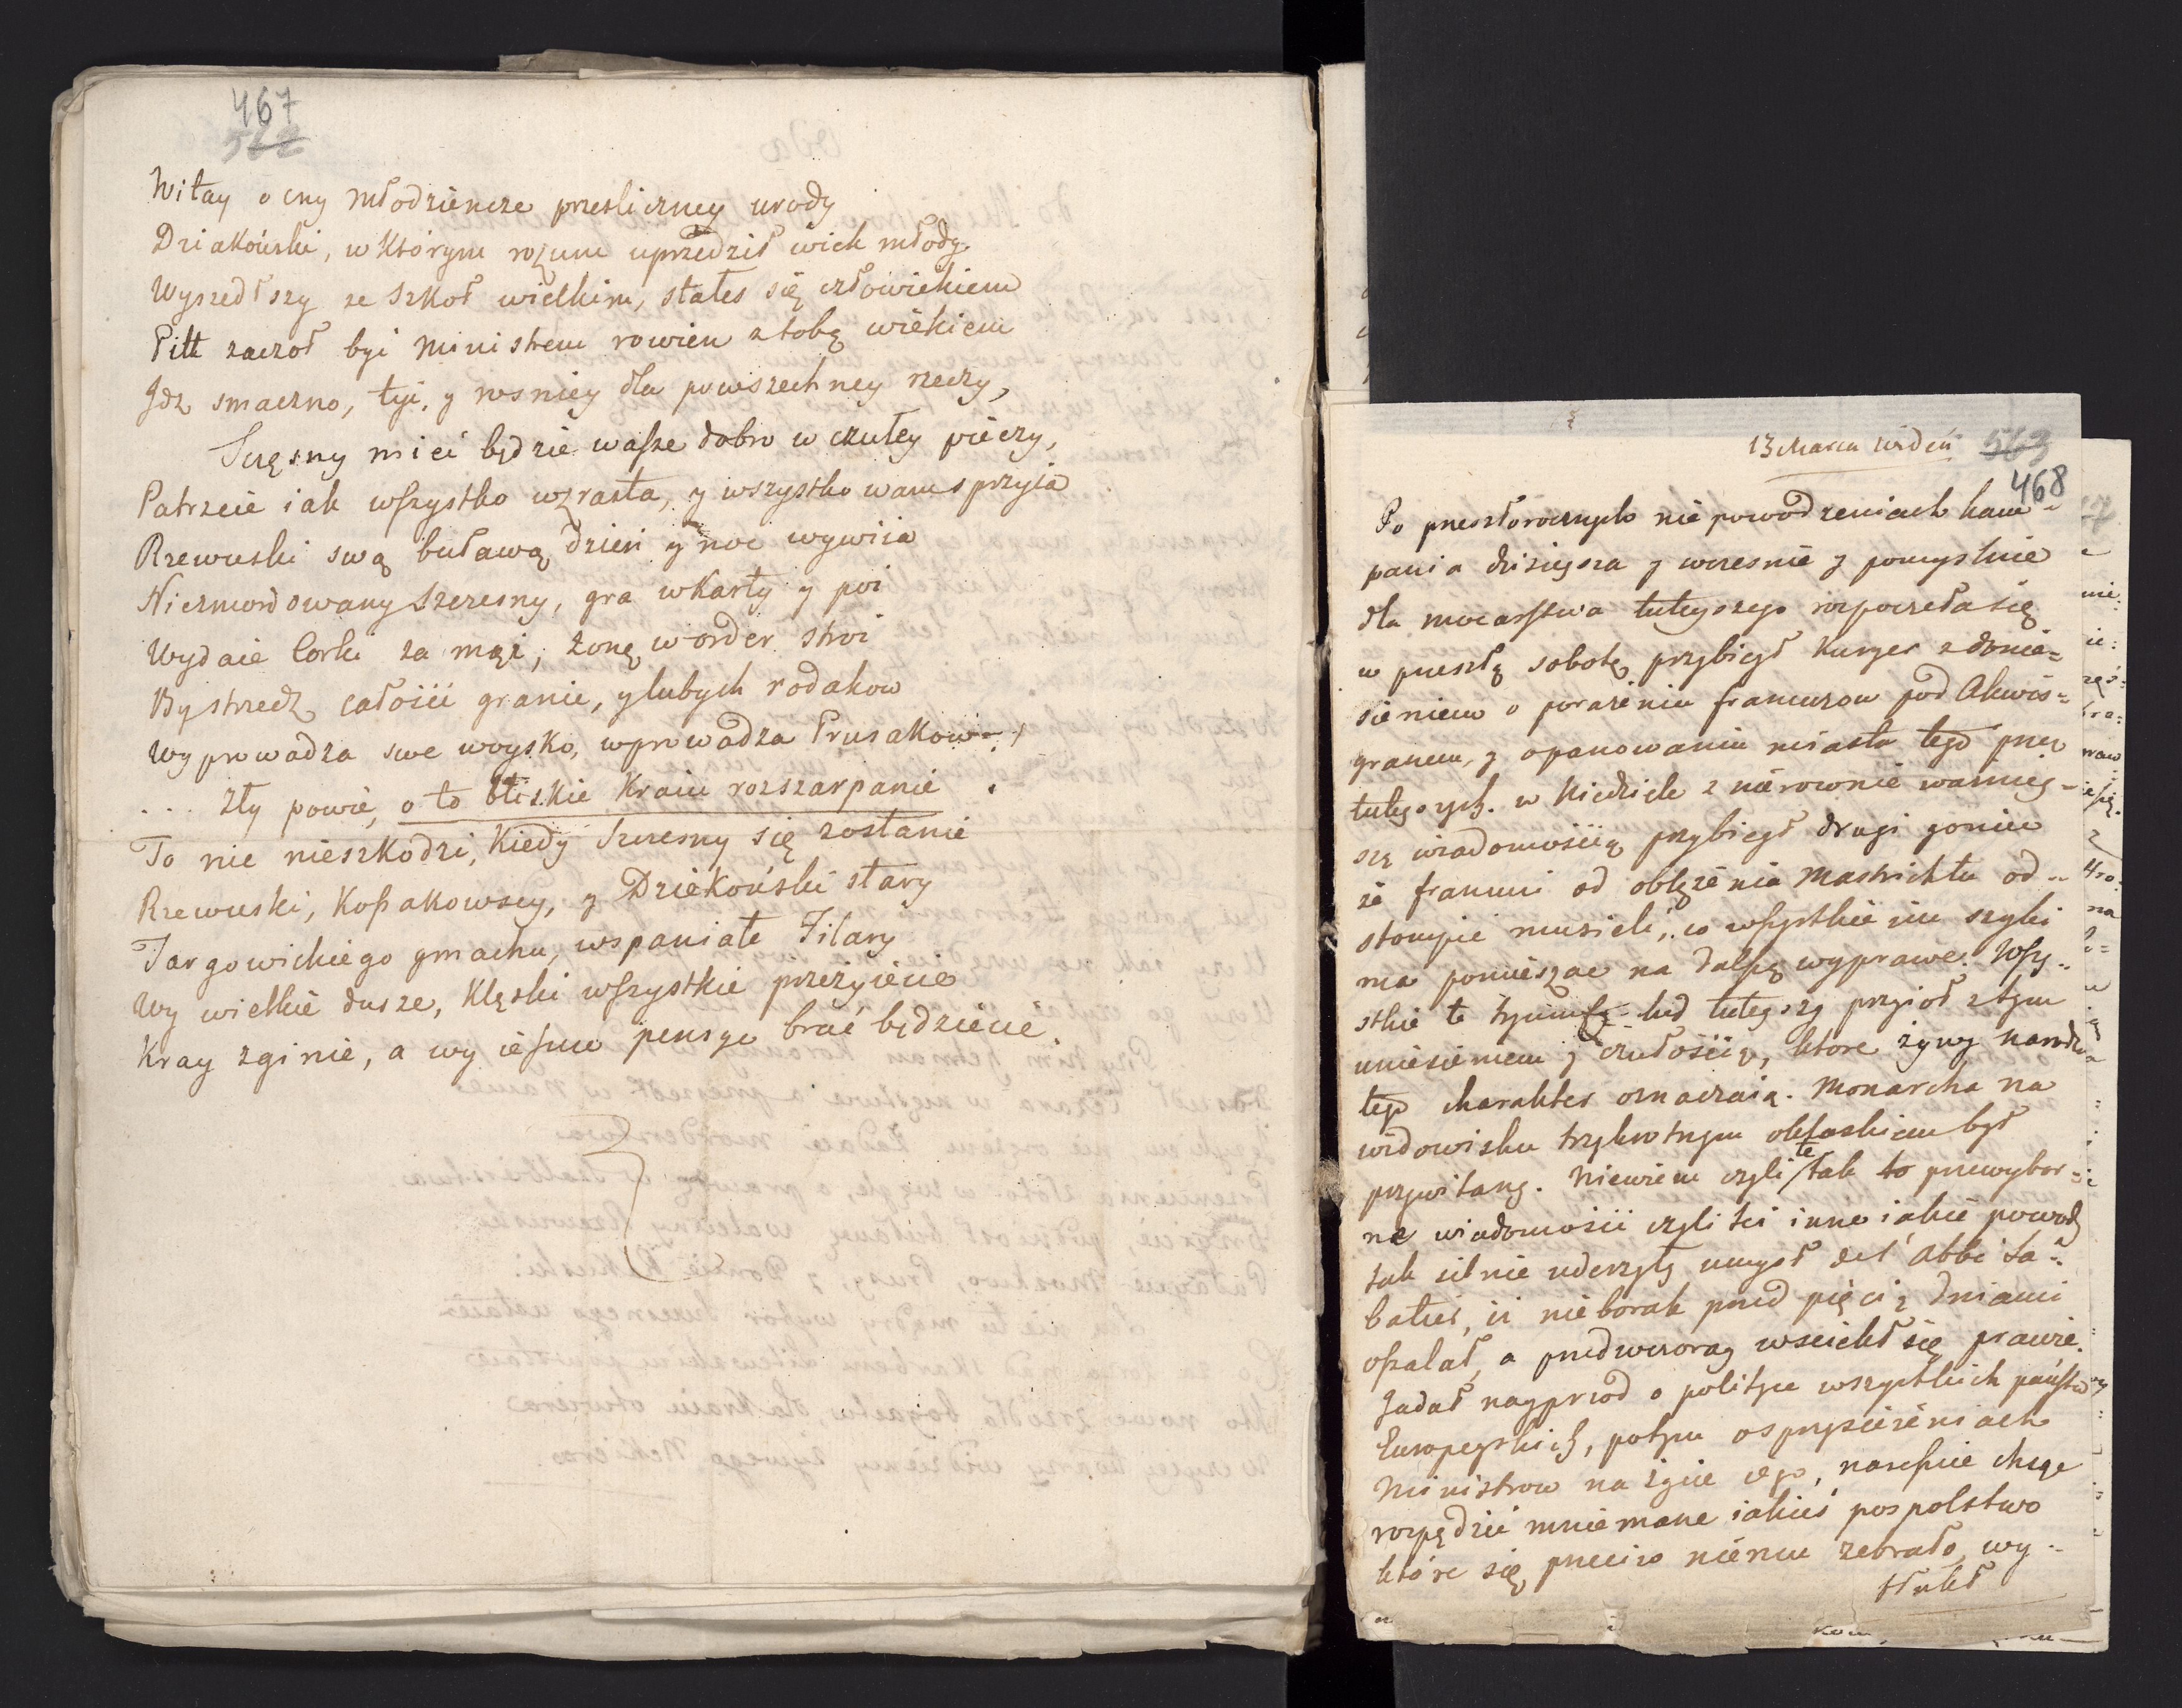 467
562
Witay o cny Młodzieńcze prześliczney urody
Dziakoński, w Którym rozum uprzedził wiek młody
Wyszedłszy ze Szkoł wielkim, stałes się człowiekiem
Pitt zaczoł być Ministrem rowien z tobą wiekiem
Jdz smaczno, tyi, y rosniey dla powszechney rzeczy,
Szczęsny mieć będzie wasze dobro w czułey pieczy,
Patrzcie iak wszystko wzrasta, y wszystko wam sprzyia
Rzewuski swą buławą dzień y noc wywiia
Niezmordowany Szczesny, gra w Karty y poi
Wydaie Corki za mąż, żonę w order stroi
By strzedz całości granic, y lubych rodakow
Wyprowadza swe woysko, wprowadza Prusakow
... Zły powie, o to bliskie Kraiu rozszarpanie
To nic nieszkodzi, Kiedy Szczesny się zostanie
Rzewuski, Kossakowscy, y Dziekoński stary
Targowickiego gmachu, wspaniałe Filary
Wy wielkie dusze, Klęski wszystkie przeżyiecie
Kray zginie, a wy ieszcze pensye brać będziecie.
13 Marca Widen
563
468
Po przeszłorocznych niepowodzeniach kam-
pania dzisieysza y wczesnie y pomyslnie
dla mocarstwa tuteyszego rozpoczeła się
w przeszłą sobotę przybiegł Kuryer z donie=
sieniem o porażeniu francuzow pod Akwis=
granem, y opanowaniu miasta tego przez
tuteyszych. w Niedziele z nierownie wazniey-
szą wiadomością przybiegł drugi goniec
że francuzi od oblężenia Mastrichtu od-
stompić musieli, co wszystkie im szyki
ma pomieszac na dalszą wyprawę. Wszy-
stkie te tryumfy lud tuteyszy przyioł z tym
uniesieniem y czułością, ktore żywy narodu
tego charakter oznaczaią. Monarcha na
widowisku trzykrotnym oklaskiem był
przywitany. Niewiem czyli te tak to przewybor-
ne wiadomości czyli też inne iakie powody
tak silnie uderzyły umysł del' Abbé Sa-
batier, iż nieborak przed pięcią dniami
oszalał, a przedwczoray wsciekł się prawie.
Gadał nayprzod o polityce wszystkich państw
Europeyskich, potym o sprzysiężeniach
Ministrow na życie iego, nareszcie chcąc
rozpędzić mniemane iakieś pospolstwo
które się przeciw niemu zebrało, wy-
tłukł